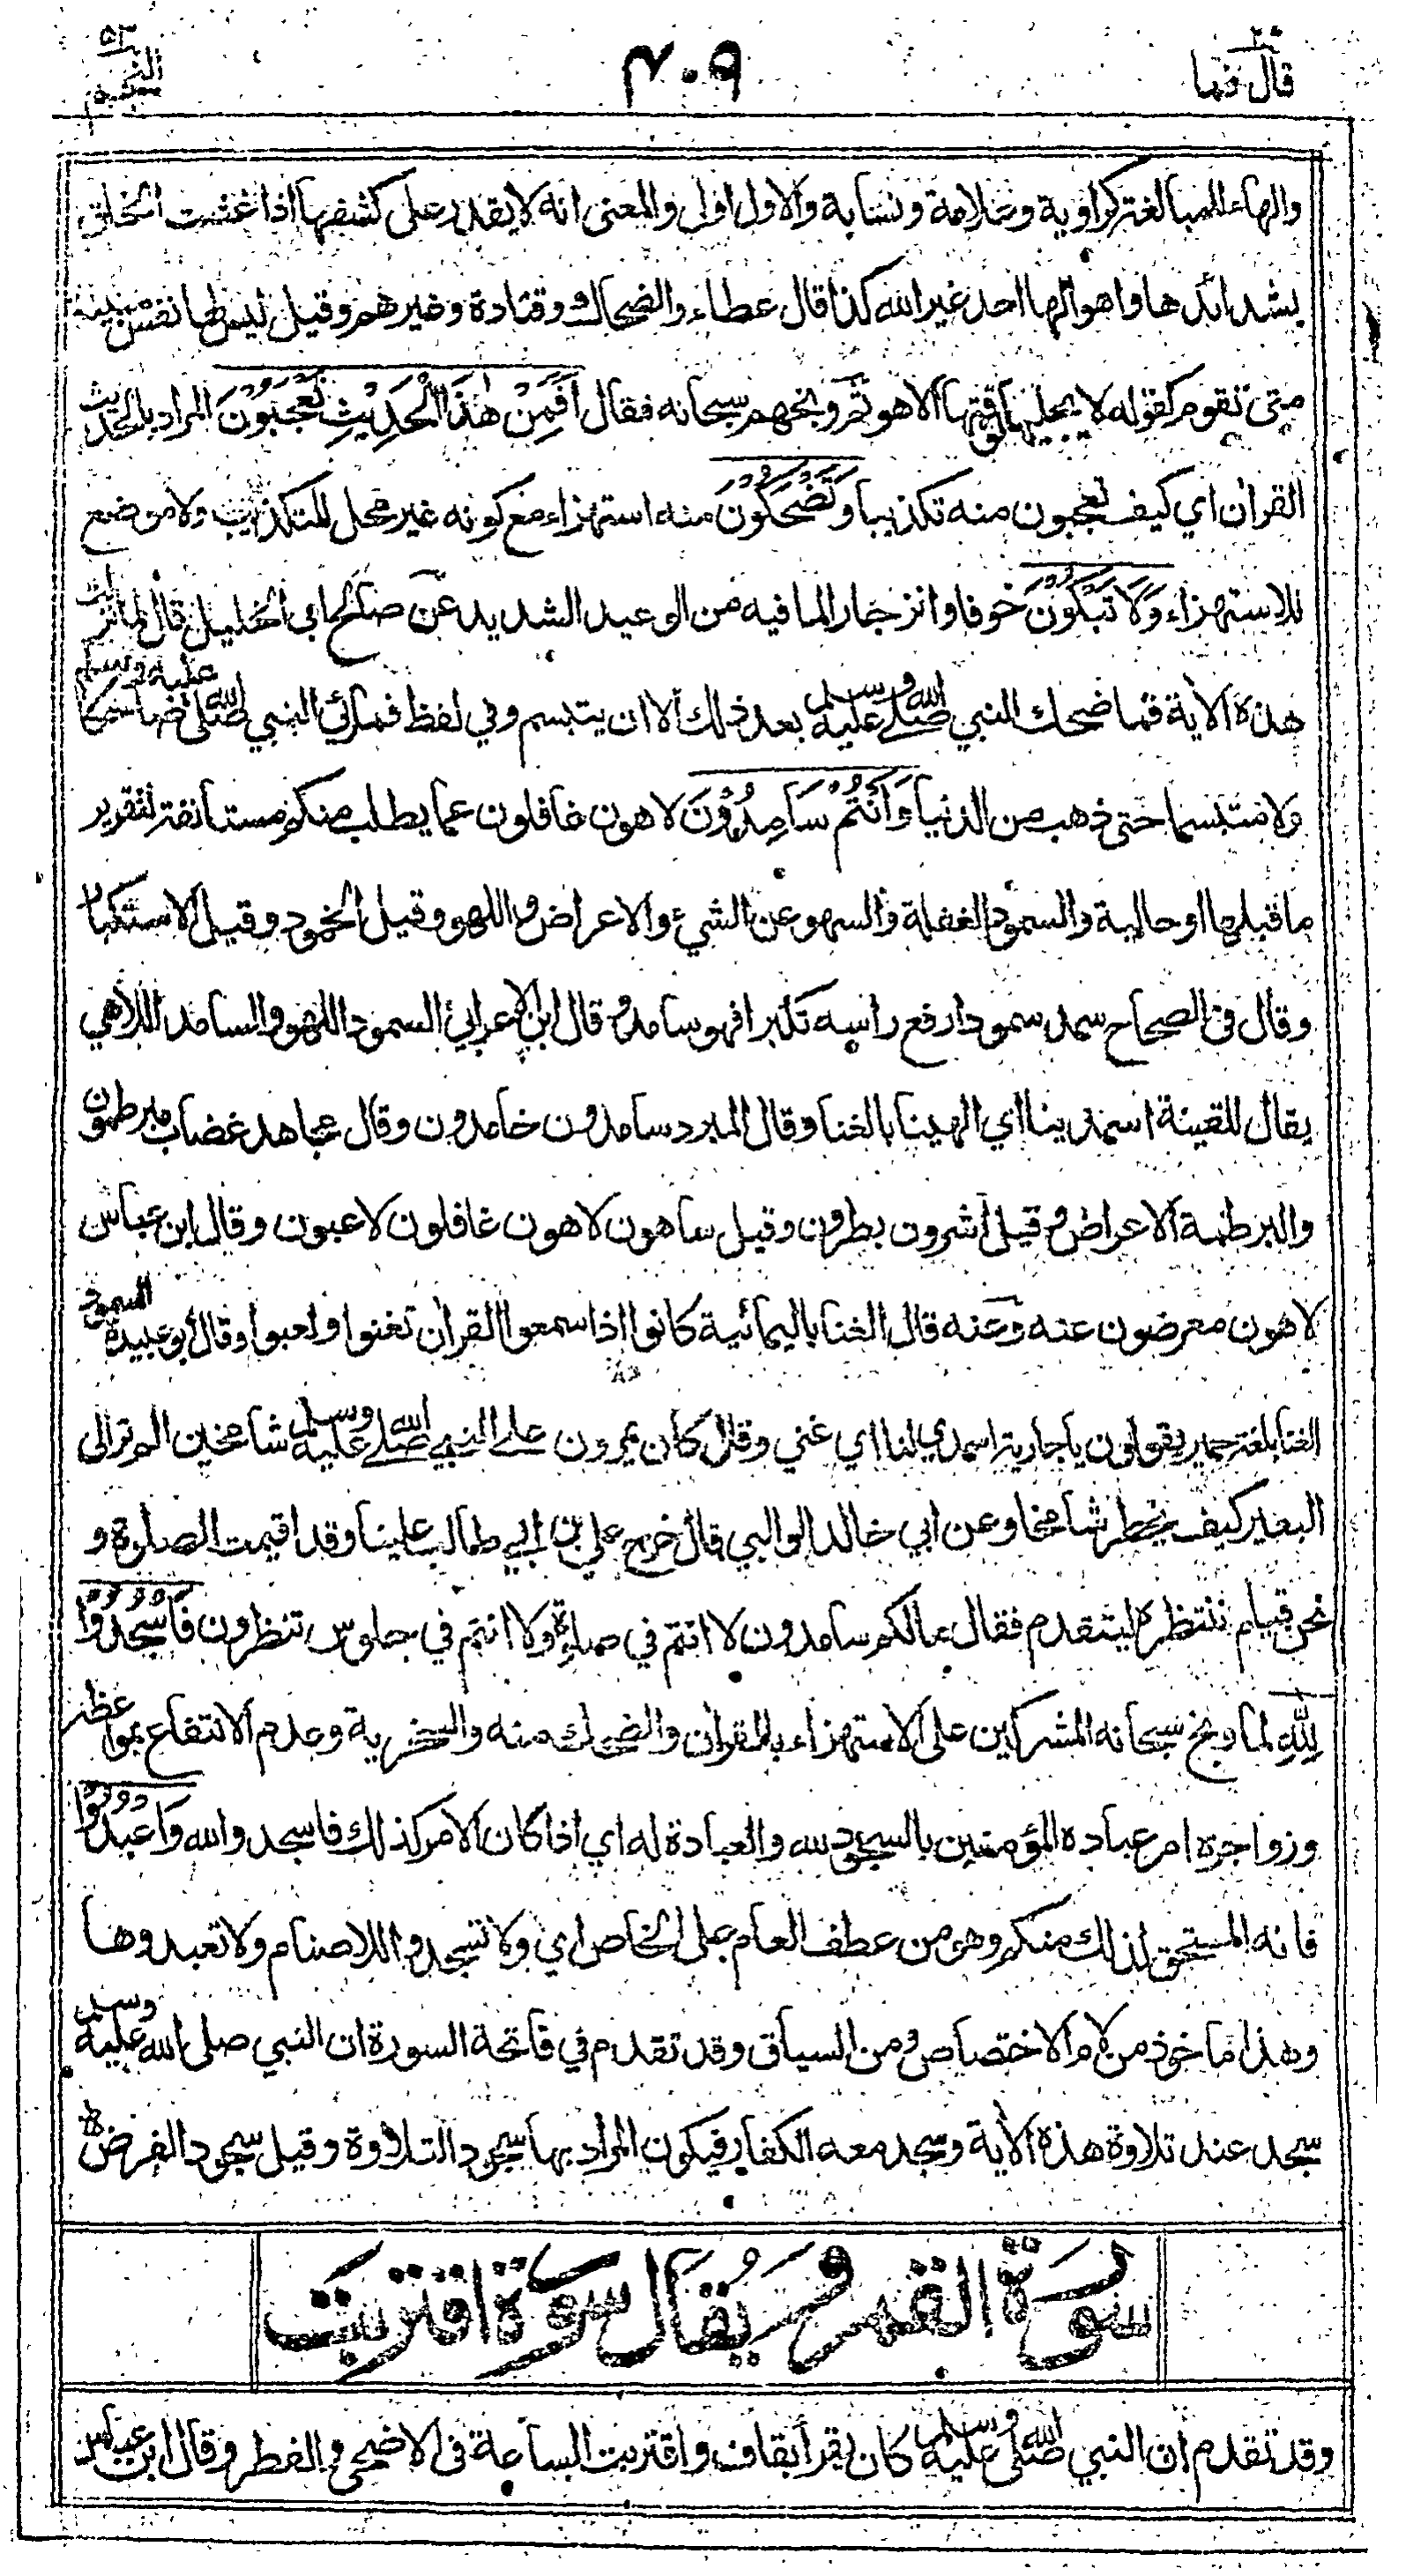 قال فما ٢٧
٢٠٩
النجم ٥٣
والهاء للمبالغة كراوية وعلامة ونسابة والاول اولى والمعنى انه لا يقدر على كشفها اذا غشت الخلق
بشدائدها واهوالها احد غير الله كذا قال عطاء والضحاك وقتادة وغيرهم وقيل ليس لها نفس مبينة
متى تقوم كقوله لا يجليها لوقتها الا هو ثم وبخهم سبحانه فقال اَفَمِنْ هٰذَا الْحَدِيْثِ تَعْجَبُوْنَ المراد بالحديث
القران اي كيف تعجبون منه تكذيبا وَتَضْحَكُوْنَ منه استهزاء مع كونه غير محل للتكذيب ولا موضع
للاستهزاء وَلَا تَبْكُوْنَ خوفا وانزجارا لما فيه من الوعيد الشديد عن صالح ابي الخليل قال لما نزلت
هذه الاية فما ضحك النبي صلى الله عليه وسلم بعد ذلك الا ان يتبسم وفي لفظ فما رئي النبي صلى الله عليه وسلم ضاحكا
ولا متبسما حتى ذهب من الدنيا وَاَنْتُمْ سَامِدُوْنَ لاهون غافلون عما يطلب منكم مستانفة لتقرير
ما قبلها او حالية والسمود الغفلة والسهو عن الشيء والاعراض واللهو وقيل الخمود وقيل الاستكبار
وقال في الصحاح سمد سمودا رفع راسه تكبرا فهو سامد وقال ابن الاعرابي السمود اللهو والسامد اللاهي
يقال للقينة اسمدينا اي الهينا بالغنا وقال المبرد سامدون خامدون وقال مجاهد غضاب مبرطمون
والبرطمة الاعراض وقيل اشرون بطرون وقيل ساهون لاهون غافلون لاعبون وقال ابن عباس
لاهون معرضون عنه وعنه قال الغنا باليمانية كانوا اذا سمعوا القران تغنوا ولعبوا وقال ابو عبيدة السمود
الغنا بلغة حمير يقولون يا جارية اسمدي لنا اي غني وقال كان يمرون على النبي صلى الله عليه وسلم شامخين الم تر الى
البعير كيف يخطر شامخا وعن ابي خالد الوالبي قال خرج علي بن ابي طالب علينا وقد اقيمت الصلوة و
نحن قيام ننتظره ليتقدم فقال مالكم سامدون لا انتم في صلوة ولا انتم في جلوس تنتظرون فَاسْجُدُوْا
لِلّٰهِ لما وبخ سبحانه المشركين على الاستهزاء بالقران والضحك منه والسخرية وعدم الانتفاع بمواعظه
وزواجره امر عباده المؤمنين بالسجود لله والعبادة له اي اذا كان الامر كذلك فاسجدوا لله وَاعْبُدُوْا
فانه المستحق لذلك منكم وهو من عطف العام على الخاص اي ولا تسجدوا للاصنام ولا تعبدوها
وهذا ماخوذ من لام الاختصاص ومن السياق وقد تقدم في فاتحة السورة ان النبي صلى الله عليه وسلم
سجد عند تلاوة هذه الاية وسجد معه الكفار فيكون المراد بها سجود التلاوة وقيل سجود الفرض
سورة القمر ويقال سورة اقتربت
وقد تقدم ان النبي صلى الله عليه وسلم كان يقرأ بقاف واقتربت الساعة في الاضحى والفطر وقال ابن عباس